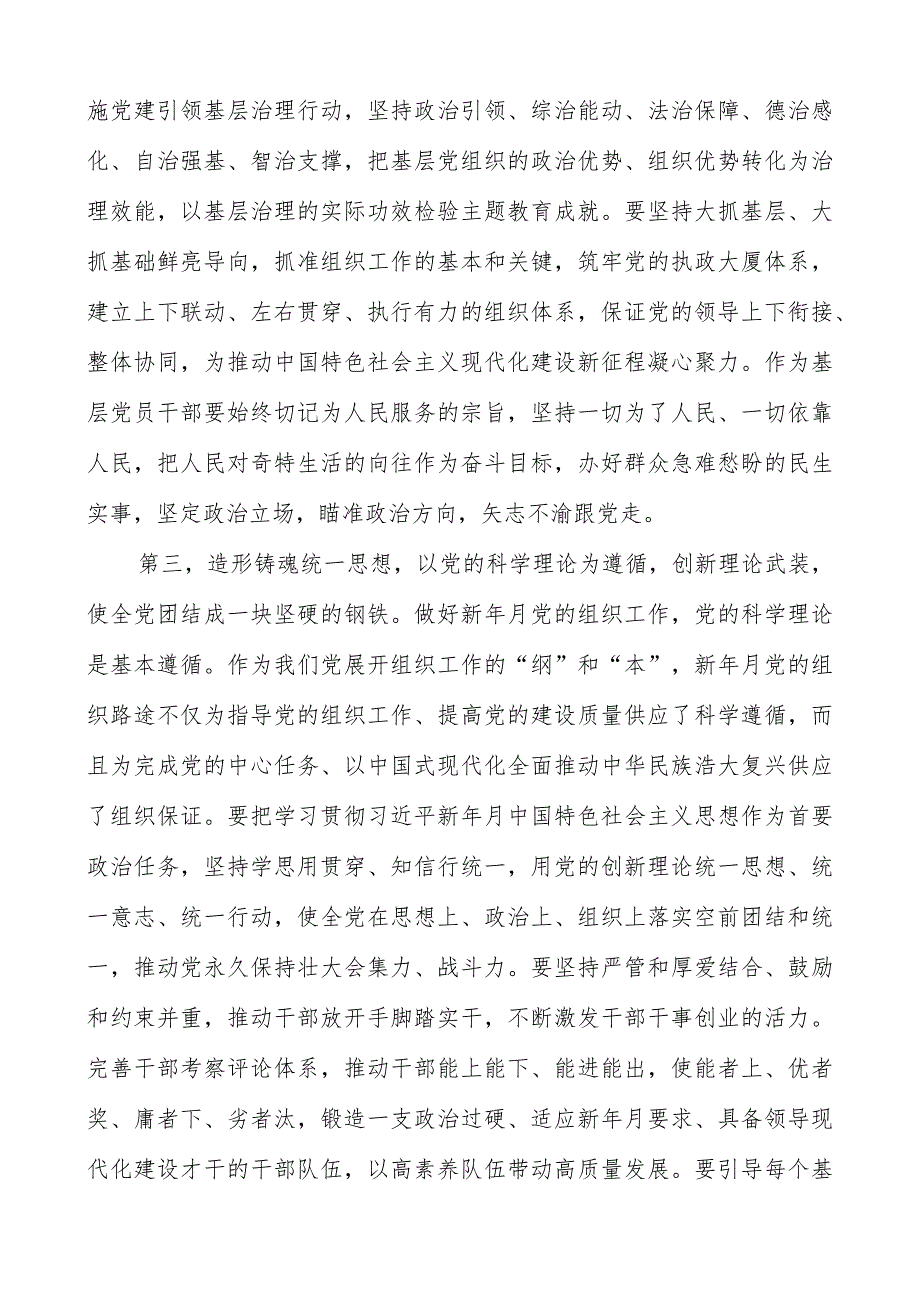 施党建引领基层治理行动，坚持政治引领、综治能动、法治保障、德治感
化、自治强基、智治支撑，把基层党组织的政治优势、组织优势转化为治
理效能，以基层治理的实际功效检验主题教育成就。要坚持大抓基层、大
抓基础鲜亮导向，抓准组织工作的基本和关键，筑牢党的执政大厦体系，
建立上下联动、左右贯穿、执行有力的组织体系，保证党的领导上下衔接、
整体协同，为推动中国特色社会主义现代化建设新征程凝心聚力。作为基
层党员干部要始终切记为人民服务的宗旨，坚持一切为了人民、一切依靠
人民，把人民对奇特生活的向往作为奋斗目标，办好群众急难愁盼的民生
实事，坚定政治立场，瞄准政治方向，矢志不渝跟党走。
第三，造形铸魂统一思想，以党的科学理论为遵循，创新理论武装，
使全党团结成一块坚硬的钢铁。做好新年月党的组织工作，党的科学理论
是基本遵循。作为我们党展开组织工作的“纲”和“本”，新年月党的组
织路途不仅为指导党的组织工作、提高党的建设质量供应了科学遵循，而
且为完成党的中心任务、以中国式现代化全面推动中华民族浩大复兴供应
了组织保证。要把学习贯彻习近平新年月中国特色社会主义思想作为首要
政治任务，坚持学思用贯穿、知信行统一，用党的创新理论统一思想、统
一意志、统一行动，使全党在思想上、政治上、组织上落实空前团结和统
一，推动党永久保持壮大会集力、战斗力。要坚持严管和厚爱结合、鼓励
和约束并重，推动干部放开手脚踏实干，不断激发干部干事创业的活力。
完善干部考察评论体系，推动干部能上能下、能进能出，使能者上、优者
奖、庸者下、劣者汰，锻造一支政治过硬、适应新年月要求、具备领导现
代化建设才干的干部队伍，以高素养队伍带动高质量发展。要引导每个基